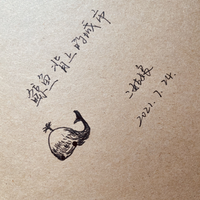 鲸鱼背上的城市
2021.7.24.